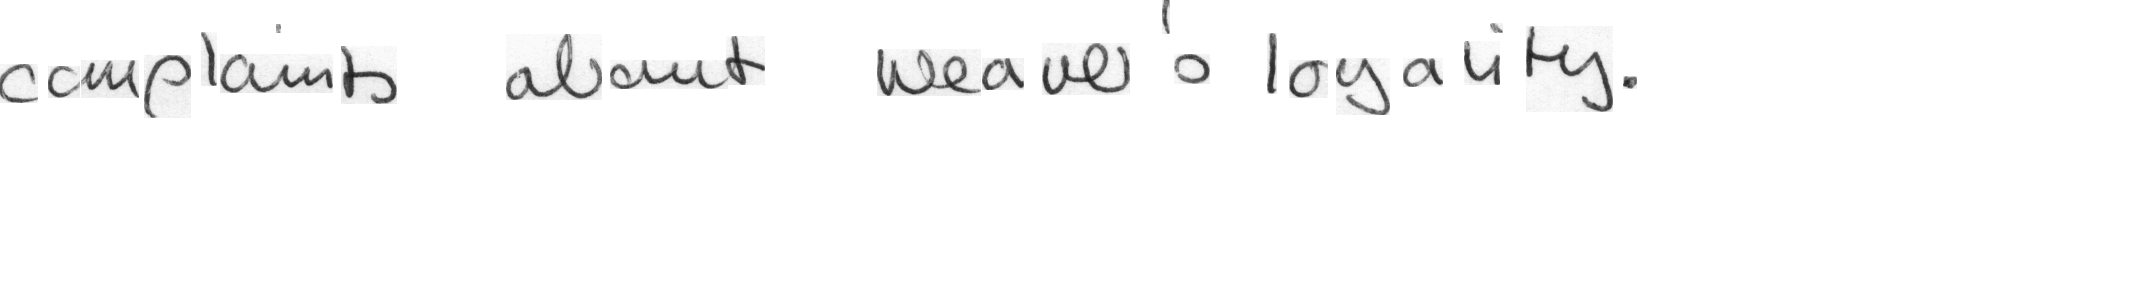 complaints about Weaver's loyality.